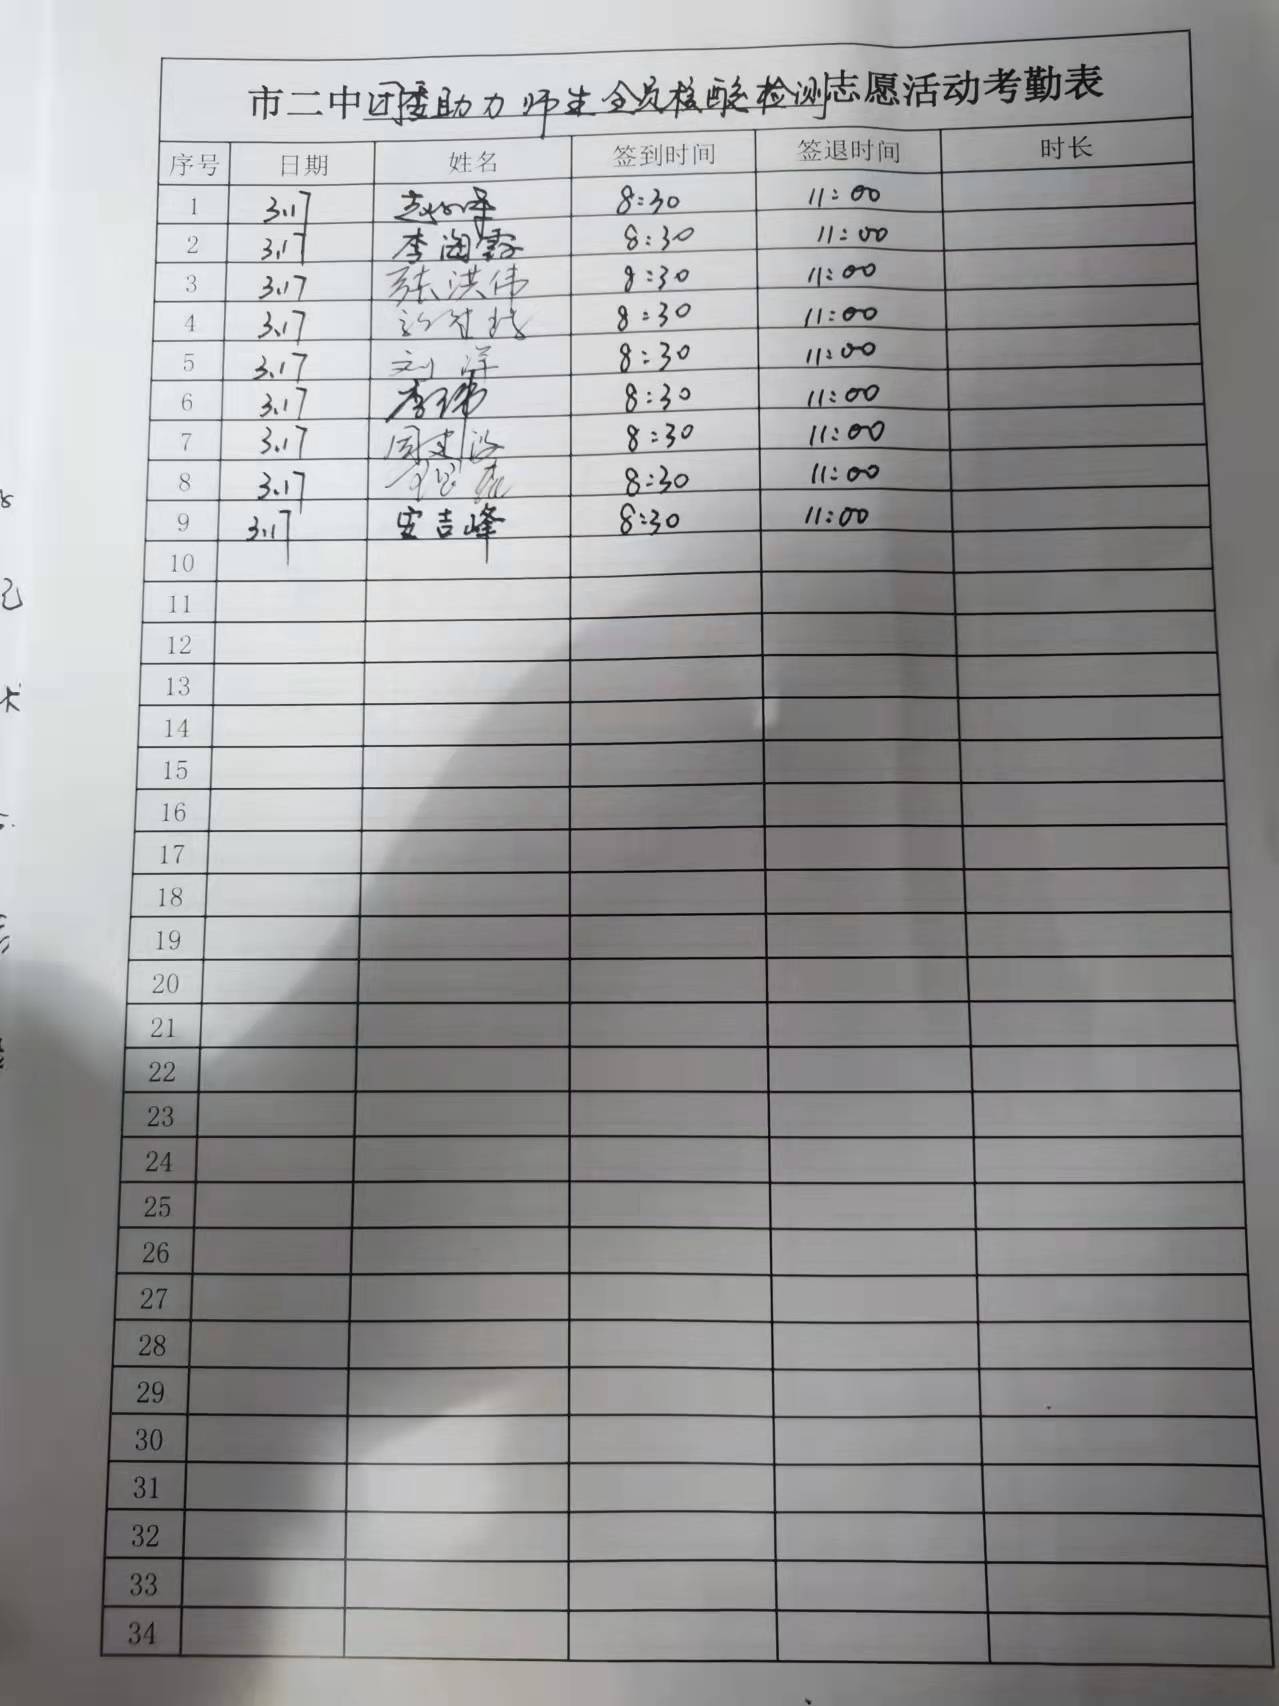 市二中团委助力师生全员核酸检测志愿活动考勤表
序号 日期 姓名 签到时间 签退时间 时长
1 3.17 8:30 11:00
2 3.17 李海霞 8:30 11:00
3 3.17 张洪伟 8:30 11:00
4 3.17 8:30 11:00
5 3.17 刘洋 8:30 11:00
6 3.17 李瑞 8:30 11:00
7 3.17 8:30 11:00
8 3.17 8:30 11:00
9 3.17 安吉峰 8:30 11:00
10
11
12
13
14
15
16
17
18
19
20
21
22
23
24
25
26
27
28
29
30
31
32
33
34